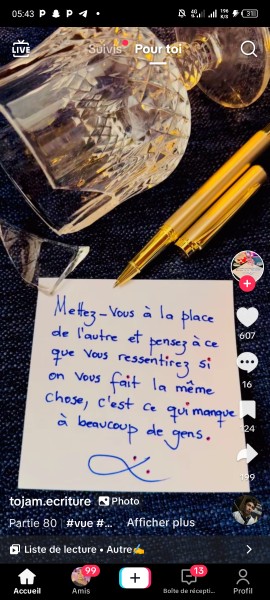 05:43
LIVE
Suivis Pour toi
Mettez-vous à la place
de l'autre et pensez à ce
que vous ressentirez si
on vous fait la même
chose, c'est ce qui manque
à beaucoup de gens.
607
16
199
tojam.ecriture Photo
Partie 80 | #vue #... Afficher plus
Liste de lecture • Autre✍️
99
13
Accueil
Amis
Boîte de récepti...
Profil